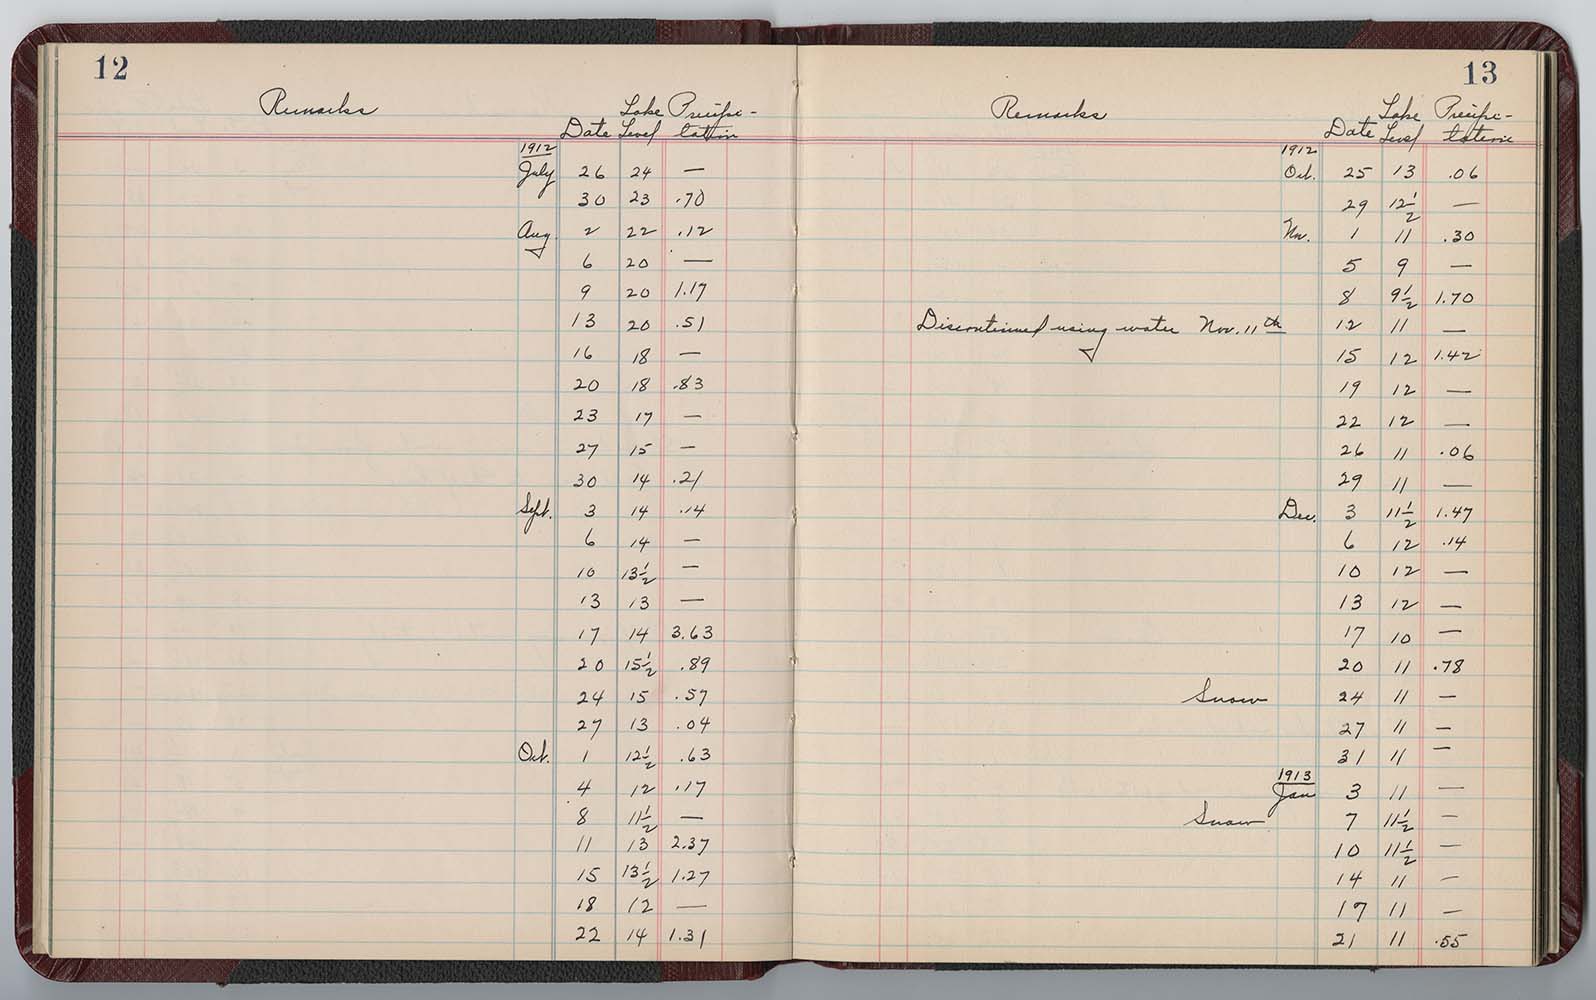 12
Remarks Date Lake Level Precipi-tation
1912
July 26 24 —
30 23 .70
Aug. 2 22 .12
6 20 —
9 20 1.17
13 20 .51
16 18 —
20 18 .83
23 17 —
27 15 —
30 14 .21
Sept. 3 14 .14
6 14 —
10 13½ —
13 13 —
17 14 3.63
20 15½ .89
24 15 .57
27 13 .04
Oct. 1 12½ .63
4 12 .17
8 11½ —
11 13 2.37
15 13½ 1.27
18 12 —
22 14 1.31
13
Remarks Date Lake Level Precipi-tation
1912
Oct. 25 13 .06
29 12½ —
Nov. 1 11 .30
5 9 —
8 9½ 1.70
Discontinued using water Nov. 11th 12 11 —
15 12 1.42
19 12 —
22 12 —
26 11 .06
29 11 —
Dec. 3 11½ 1.47
6 12 .14
10 12 —
13 12 —
17 10 —
20 11 .78
Snow 24 11 —
27 11 —
31 11 —
1913
Jan 3 11 —
Snow 7 11½ —
10 11½ —
14 11 —
17 11 —
21 11 .55